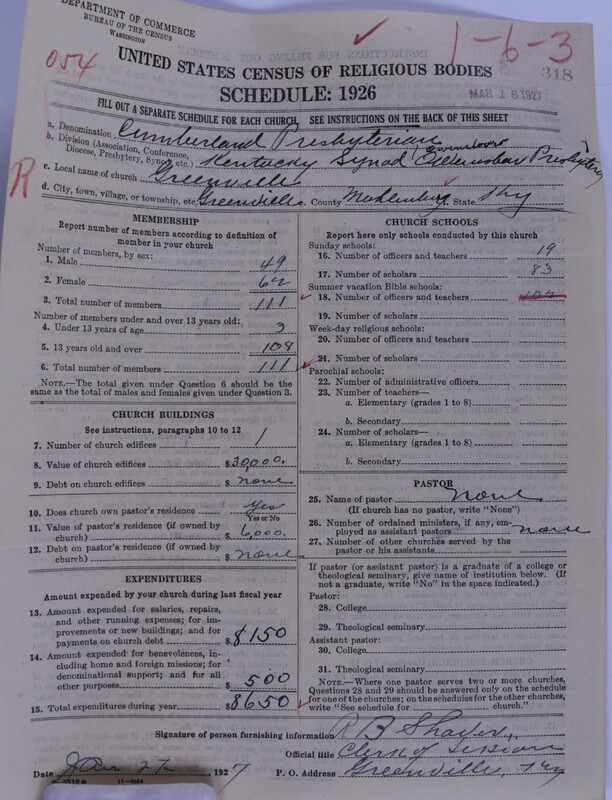 DEPARTMENT OF COMMERCE
BUREAU OF THE CENSUS
WASHINGTON
1-6-3
318
054
UNITED STATES CENSUS OF RELIGIOUS BODIES
SCHEDULE: 1926
MAR 16 1927
FILL OUT A SEPARATE SCHEDULE FOR EACH CHURCH. SEE INSTRUCTIONS ON THE BACK OF THIS SHEET
a. Denomination Cumberland Presbyterian
b. Division (Association, Conference, Diocese, Presbytery, Synod, etc.) Kentucky Synod Owensboro Presbytery
R
c. Local name of church Greenville
d. City, town, village, or township, etc. Greenville County State Ky
MEMBERSHIP
Report number of members according to definition of
member in your church
Number of members, by sex:
1. Male 49
2. Female 62
3. Total number of members 111
Number of members under and over 13 years old:
4. Under 13 years of age 3
5. 13 years old and over 108
6. Total number of members 111
NOTE.—The total given under Question 6 should be the
same as the total of males and females given under Question 3.
CHURCH BUILDINGS
See instructions, paragraphs 10 to 12
7. Number of church edifices 1
8. Value of church edifices $30,000.
9. Debt on church edifices $ none
10. Does church own pastor's residence? Yes
Yes or No
11. Value of pastor's residence (if owned by
church) $6,000.
12. Debt on pastor's residence (if owned by
church) $ none
EXPENDITURES
Amount expended by your church during last fiscal year
13. Amount expended for salaries, repairs,
and other running expenses; for im-
provements or new buildings; and for
payments on church debt $8150
14. Amount expended for benevolences, in-
cluding home and foreign missions; for
denominational support; and for all
other purposes $500
15. Total expenditures during year $8650
CHURCH SCHOOLS
Report here only schools conducted by this church
Sunday schools:
16. Number of officers and teachers 19
17. Number of scholars 83
Summer vacation Bible schools:
18. Number of officers and teachers
19. Number of scholars
Week-day religious schools:
20. Number of officers and teachers
21. Number of scholars
Parochial schools:
22. Number of administrative officers
23. Number of teachers—
a. Elementary (grades 1 to 8)
b. Secondary
24. Number of scholars—
a. Elementary (grades 1 to 8)
b. Secondary
PASTOR
25. Name of pastor none
(If church has no pastor, write "None")
26. Number of ordained ministers, if any, em-
ployed as assistant pastors none
27. Number of other churches served by the
pastor or his assistants
If pastor (or assistant pastor) is a graduate of a college or
theological seminary, give name of institution below. (If
not a graduate, write "No" in the space indicated.)
Pastor:
28. College
29. Theological seminary
Assistant pastor:
30. College
31. Theological seminary
NOTE.—Where one pastor serves two or more churches,
Questions 28 and 29 should be answered only on the schedule
for one of the churches; on the schedules for the other churches,
write "See schedule for church."
Signature of person furnishing information R B
Official title Clerk of Session
Date Jan 27 1927 P. O. Address Greenville, Ky